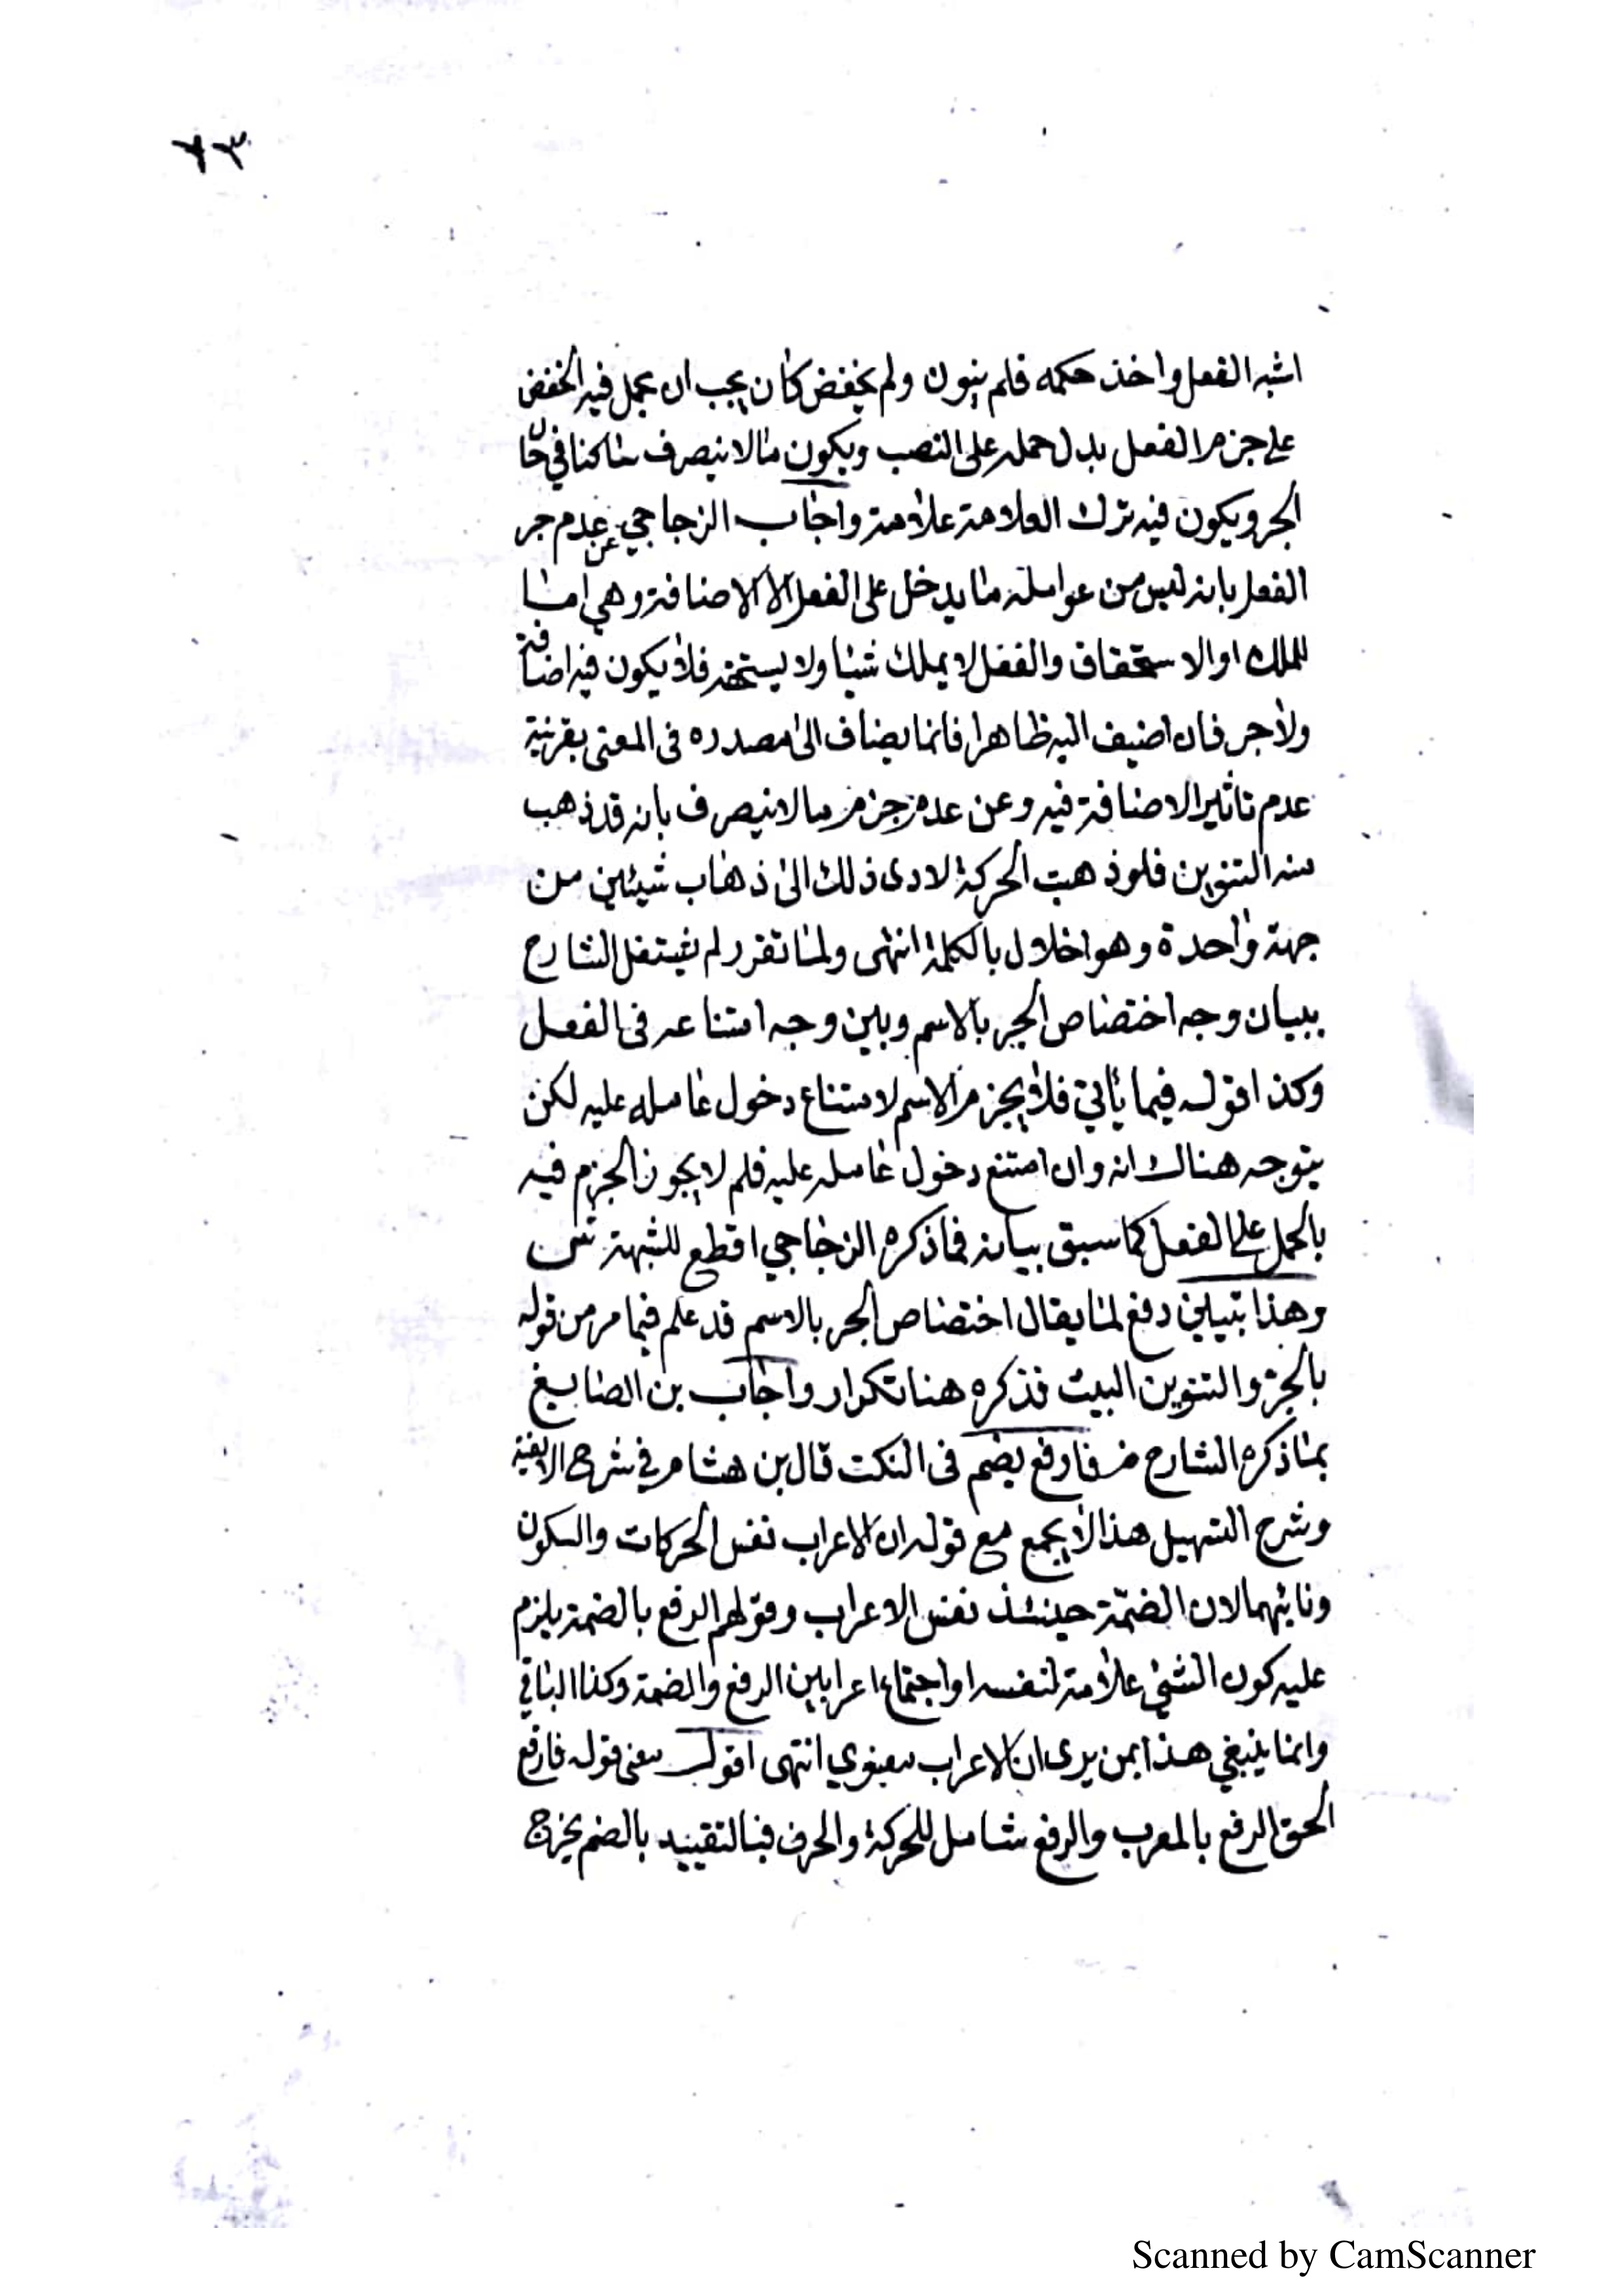 ٧٣
اشبه الفعل واخذ حكمه فلم ينون ولم يخفض كان يجب ان يحمل فيه الخفض
على جزم الفعل بدل حمله على النصب ويكون ما لا ينصرف ساكنا في حال
الجر ويكون فيه ترك العلامة علامة واجاب الزجاجي عن عدم جر
الفعل بانه ليس من عوامله ما يدخل على الفعل الا الاضافة وهي اما
للملك او الاستحقاق والفعل لا يملك شيا ولا يستحقه فلا يكون فيه اضافة
ولا جر فان اضيف اليه ظاهرا فانما يضاف الى مصدره في المعنى بقرينة
عدم تاثير الاضافة فيه وعن عدم جزم ما لا ينصرف بانه قد ذهب
منه التنوين فلو ذهبت الحركة لادى ذلك الى ذهاب شيئين من
جهة واحدة وهو اخلال بالكلمة انتهى ولما تقرر لم يشتغل الشارح
ببيان وجه اختصاص الجر بالاسم وبين وجه امتناعه في الفعل
وكذا قوله فيما ياتي فلا يجزم الاسم لامتناع دخول عامله عليه لكن
يتوجه هناك انه وان امتنع دخول عامله عليه فلم لا يجوز الجزم فيه
بالحمل على الفعل كما سبق بيانه فما ذكره الزجاجي اقطع للشبهة ش
وهذا تبيين دفع لما يقال اختصاص الجر بالاسم قد علم فيما مر من قوله
بالجر والتنوين البيت فذكره هنا تكرار واجاب بن الصايغ
بما ذكره الشارح ص فارفع بضم في النكت قال بن هشام في شرح الالفية
وشرح التسهيل هذا لا يجمع مع قوله ان الاعراب نفس الحركات والسكون
ونائبهما لان الضمة حينئذ نفس الاعراب وقولهم الرفع بالضمة يلزم
عليه كون الشئ علامة لنفسه او اجتماع اعرابين الرفع والضمة وكذا الباقي
وانما ينبغي هذا بمن يرى ان الاعراب معنوي انتهى اقول معنى قوله فارفع
الحق الرفع بالمعرب والرفع شامل للحركة والحرف فبالتقييد بالضم يخرج
Scanned by CamScanner